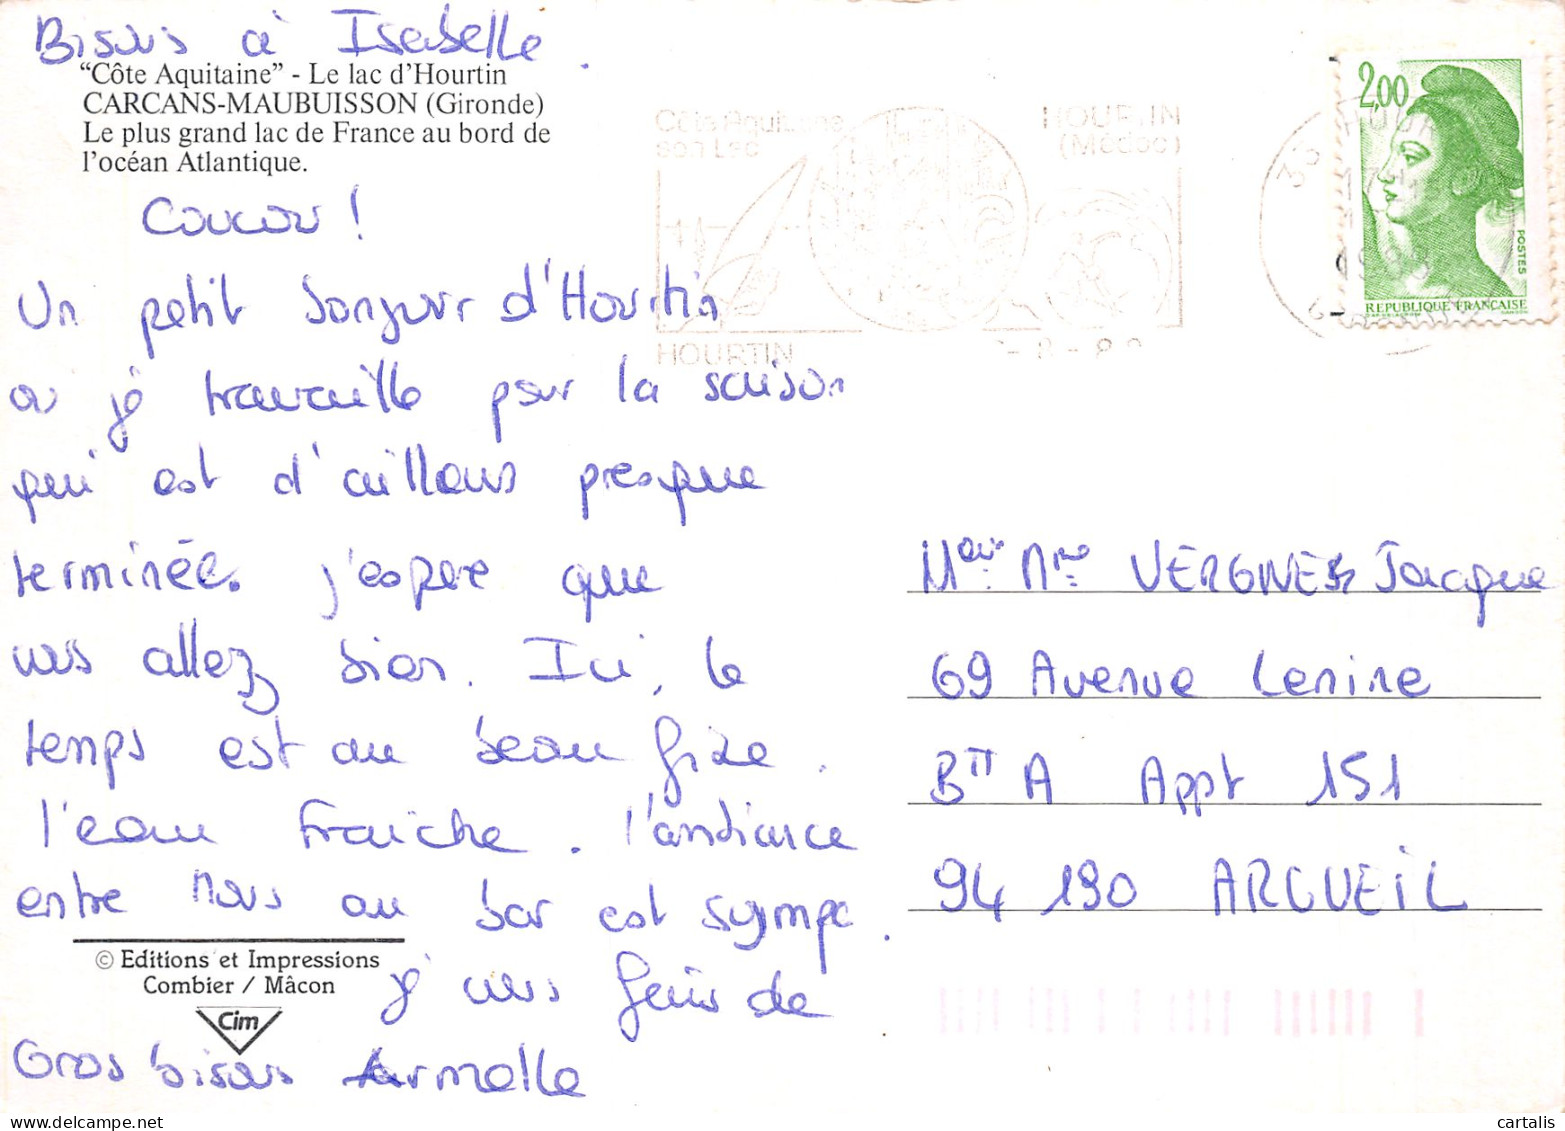 Bisous à Isabelle.
"Côte Aquitaine" - Le lac d'Hourtin
CARCANS-MAUBUISSON (Gironde)
Le plus grand lac de France au bord de
l'océan Atlantique.
Coucou !
Un petit bonjour d'Hourtin
ou je travaille pour la saison
qui est d'ailleurs presque
terminée. j'espere que
vous allez bien. Ici, le
temps est au beau fixe.
l'eau fraiche. l'ambiance
entre nous au bar est sympa.
je vous fais de
Gros bisous Armelle
© Editions et Impressions
Combier / Mâcon
Cim
Côte Aquitaine
son Lac
HOURTIN
(Médoc)
HOURTIN
2,00
POSTES
REPUBLIQUE FRANÇAISE
VERGNES Jacque
69 Avenue Lenine
Btt A Appt 151
94 190 ARCUEIL
cartalis.com